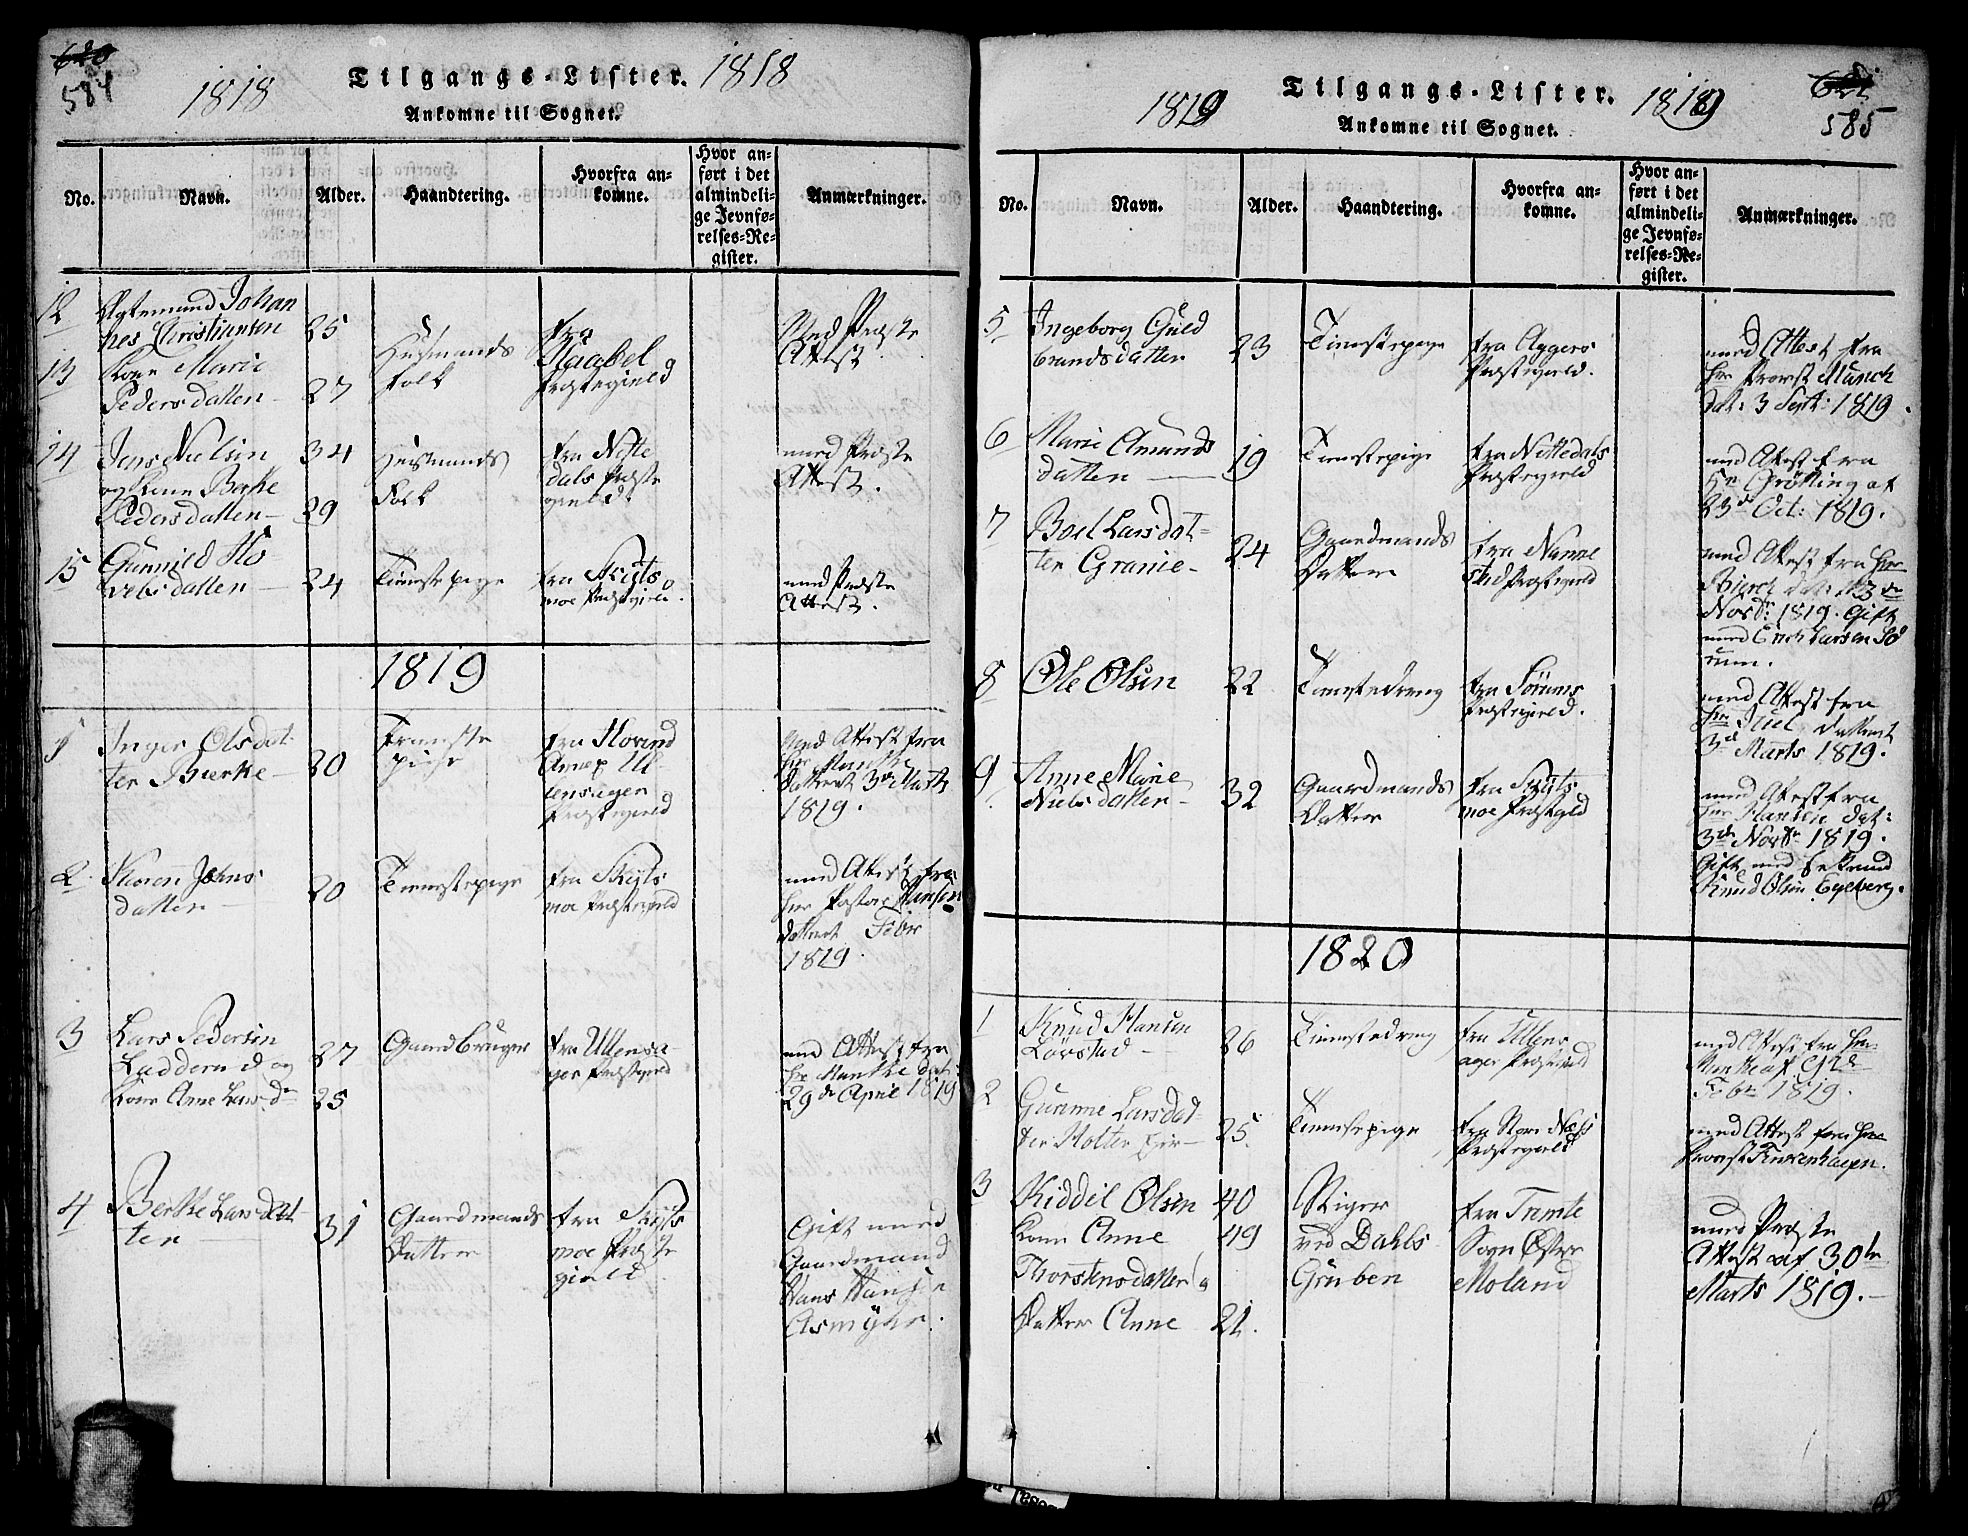 620
584
1818
Tilgangs-Lister.
1818
Ankomne til Sognet.
No.
Navn.
Alder.
Haandtering.
Hvorfra an-
komne.
Hvor an-
ført i det
almindeli-
ge Jevnfø-
relses-Re-
gister.
Anmærkninger.
12
Johan
nes Christiansen
25
13
Kone Marie
Pedersdatter
27
Huusmands
Folk
fra
Præstegield
Med Præste
Attest
14
Jens Nielsen
34
og Kone Berte
Pedersdatter
29
Huusmands
Folk
fra Nitte
dals Præste
gield
med Præste
Attest.
15
Gunnild Ho
velsdatter
24
Tienestepige
fra Skyts
moe Præstegield.
med Præste
Attest.
1819
1
Inger Olsdat
ter Bierke
20
Tieneste
pige
fra Hovind
Annex Ul
lensager
Præstegield
Med Attest fra
Hr Munthe
dateret 3de Marts
1819.
2
Karen Johns
datter
20
Tienestepige
fra Skyts
moe Præstegield
med Attest fra
Hr Pastor Hansen
dateret Febr
1819.
3
Lars Pedersen
Ladderud og
Kone Anne Larsd
27
25
Gaardbruger
fra Ullensa-
ger Præstegield
med Attest fra
Hr Munthe dat:
29de April 1819
4
Berthe Larsdat
ter
31
Gaardmands
Datter
fra Skyts
moe Præste
gield
Gift med
Gaardmand
Hans Hansen
Asmyhr.
1819
Tilgangs-Lister.
1819
Ankomne til Sognet.
621
585
No.
Navn.
Alder.
Haandtering.
Hvorfra an-
komne.
Hvor an-
ført i det
almindeli-
ge Jevnfø-
relses-Re-
gister.
Anmærkninger.
5
Ingeborg Guld
brandsdatter
23
Tienestepige
fra Aggers
Præstegield.
med Attest fra
Hr Provst Munch
dat: 3 Sept: 1819.
6
Marie Amunds
datter
19
Tienestepige
fra Nittedals
Præstegield
med Attest fra
Hr Grötting af
23de Oct: 1819.
7
Boel Larsdat-
ter Granie
24
Gaardmands
Datter
fra Nanne
stad Præstegield
med Attest fra Hr
Bierch dat:
Novbr 1819. Gift
med Erich Larsen Sö
rum.
8
Ole Olsen
22
Tienestedreng
fra Sörums
Præstegield.
med Attest fra
Hr Juel dateret
3de Marts 1819.
9
Anne Marie
Nielsdatter
32
Gaardmands
Datter
fra Skyts
moe Præstegield
med Attest fra
Hr Hansen dat:
3de Novbr 1819.
Gift med Enkemand
Knud Olsen
1820
1
Knud Hansen
Lörstad
26
Tienestedreng
fra Ullens
ager Præstegield
med Attest fra Hr
Munthe af
Febr 1819.
2
Gunnie Larsdat
ter Holter
25
Tienestepige
fra Store Næss
Præstegield
med Attest fra Hr
Provst Finkenhagen.
3
Kiddil Olsen
40
Kone Anne
49
Thorstensdatter og
Datter Anne
21.
Stiger
ved Dahls
Gruben
fra Tremte
Sogn Östre
Moland
med Præste
Attest af 30te
Marts 1819.